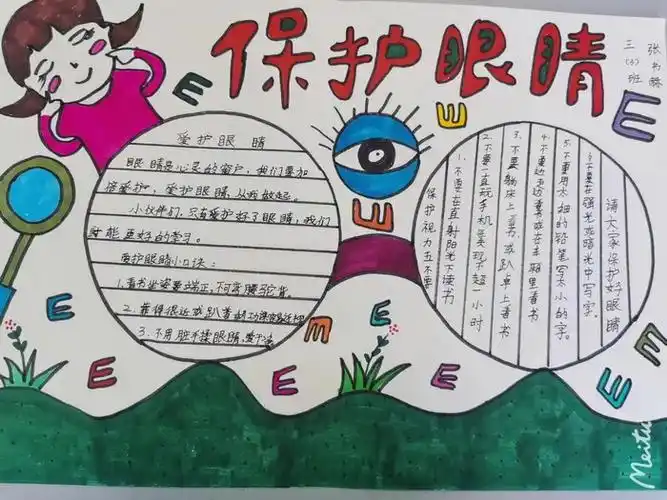 保护眼睛
三(3)班
张书
爱护眼睛
眼睛是心灵的窗户，我们要加
倍爱护，爱护眼睛，从我做起。
小伙伴们，只有爱护好了眼睛，我们
才能更好的学习。
爱护眼睛小口诀：
1.看书坐姿要端正，不弯腰驼背。
2.靠得很近或趴着
3.不用脏手揉眼睛，
保护视力五不要
1.不要在直射阳光下读书
2.不要一直玩手机
不超一小时
3.不要躺床上看书或趴桌上看书
4.不要边走边看书或在车厢里看书
5.不要用太细的铅笔写太小的字。
6.不要在强光或暗光中写字。
请大家保护好眼睛
E
E
E
E
E
E
E
E
E
E
E
E
Meitu